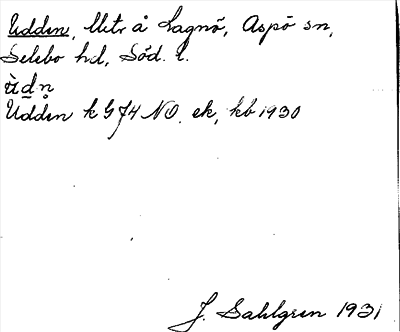 Udden, Utr å Lagnö, Aspö sn,
Selebo hd, Söd. l.
ùdn̥
Udden k G J4 NO. ek, kb 1930
J. Sahlgren 1931